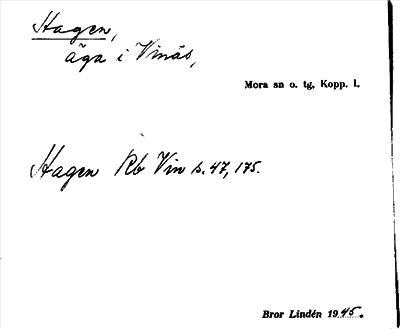 Hagen,
äga i Vinäs,
Mora sn o. tg, Kopp. l.
Hagen Rb Vin s. 47, 175.
Bror Lindén 1945.